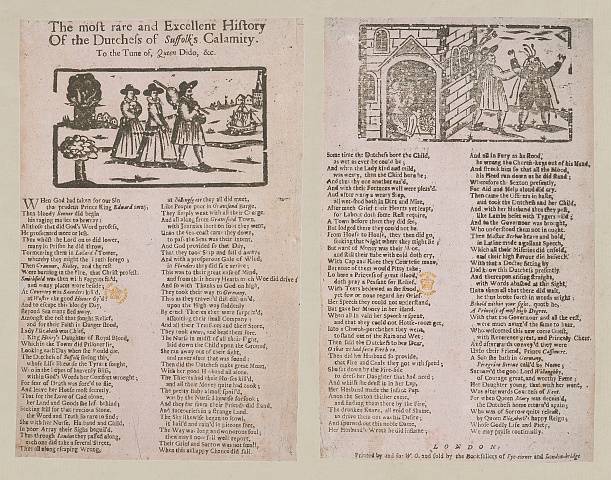 The most rare and Excellent History
Of the Dutchess of Suffolk's Calamity.
To the Tune of, Queen Dido, &c.
WHen God had taken for our Sin
that prudent Prince King Edward away,
Then bloody Bonner did begin
his raging malice to bewray:
All those that did God's Word profess,
He persecuted more or less.
Thus whilst the Lord on us did lower,
many in Prison he did throw,
Tormenting them in Lolard's Tower,
whereby they might the Truth forego:
Then Cranmer, Ridley, and the rest,
Were burning in the Fire, that Christ profest.
Smithfield was then with Faggots fill'd,
and many places more beside;
At Coventry was Saunders kill'd,
at Worster eke good Hooper dy'd:
And to escape this bloody Day,
Beyond Sea many fled away.
Amongst the rest that sought Relief,
and for their Faith in Danger stood,
Lady Elizabeth was Chief,
King Henry's Daughter of Royal Blood,
Which in the Tower did Prisoner lie,
Looking each Day when she should die.
The Dutchess of Suffolk seeing this,
whose Life likewise the Tyrant sought,
Who in the hopes of heavenly Bliss,
within God's Words her Comfort wrought;
For fear of Death was forc'd to flie,
And leave her House most secretly.
That for the Love of God alone,
her Land and Goods she left behind;
Seeking still for that precious Stone,
the Word and Truth so rare to find:
She with her Nurse, Husband and Child,
In poor Array their Sighs beguil'd.
Thus through London they passed along,
each one did take a several Street,
Thus all along escaping Wrong,
at Billingsgate they all did meet,
Like People poor in Gravesend Barge,
They simply went with all their Charge.
And all along from Gravesend Town,
with Journies short on foot they went,
Unto the Sea-coast came they down,
to pass the Seas was their intent,
And God provided so that Day,
That they took Ship and sail'd away.
And with a prosperous Gale of Wind,
in Flanders safe they did arrive,
This was to their great ease of Mind,
and from their heavy Hearts much Woe did drive;
And so with Thanks to God on high,
They took their way to Germany.
Thus as they travel'd still disguis'd,
upon the High-way suddenly
By cruel Thieves they were surpriz'd,
assaulting their small Company:
And all their Treasure and their Store,
They took away, and beat them sore.
The Nurse in midst of all their Fight,
laid down the Child upon the Ground,
She ran away out of their sight,
and never after that was found:
Then did the Dutchess make great Moan,
With her good Husband all alone.
The Thieves had then their Horses kill'd,
and all their Money quite had took;
The pretty Babe almost spoil'd,
was by the Nurse likewise forsook;
And they far from their Friends did stand,
And succourless in a strange Land.
The Sky likewise began to lowre,
it hail'd and rain'd in piteous sort,
The Way was long and wonderous foul;
then may I now full well report,
Their Grief and Sorrow was not small,
When this unhappy Chance did fall.
Some time the Dutchess bore the Child,
as wet as ever he could be;
And when the Lady kind and mild,
was weary, then the Child bore he;
And thus they one another eas'd,
And with their Fortunes well were pleas'd.
And after many a weary step,
all wet-shod both in Dirt and Mire,
After much Grief their Hearts yet leapt,
for Labour doth some Rest require,
A Town before them they did see,
But lodged there they could not be.
From House to House, they then did go,
seeking that Night where they might lie;
But want of Money was their Woe,
and still the Babe with cold doth cry,
With Cap and Knee they Courtsie make,
But none of them would Pity take.
Lo here a Princess of great Blood,
doth pray a Peasant for Relief,
With Tears bedewed as she stood,
yet few or none regard her Grief;
Her Speech they could not understand,
But gave her Money in her Hand.
When all in vain her Speech was spent,
and that they could not House-room get,
Into a Church-porch then they went,
to stand out of the Rain and Wet:
Then said the Dutchess to her Dear,
O that we had some Fire here.
Then did her Husband so provide,
that Fire and Coals they got with speed:
She sat down by the Fire-side
to dress her Daughter that had need:
And whilst he drest it in her Lap,
Her Husband made the Infant Pap.
Anon the Sexton thither came,
and finding them there by the Fire,
The drunken Knave, all void of Shame,
to drive them out was his Desire:
And spurned out this noble Dame,
Her Husband's Wrath he did inflame;
And all in Fury as he stood,
he wrung the Church-keys out of his Hand,
And struck him so that all the Blood,
his Head ran down as he did stand:
Wherefore the Sexton presently,
For Aid and Help aloud did cry.
Then came the Officers in haste,
and took the Dutchess and her Child,
And with her Husband thus they past,
like Lambs beset with Tygers wild;
And to the Governour was brought,
Who understood them not in ought.
Then Master Bertue brave and bold,
in Latine made a gallant Speech,
Which all their Miseries did unfold,
and their high Favour did beseech:
With that a Doctor sitting by
Did know the Dutchess presently.
And thereupon arising straight,
with Words abashed at this Sight,
Unto them all that there did wait,
he thus broke forth in words aright:
Behold within your sight, quoth he,
A Princess of most high Degree.
With that the Governour and all the rest,
were much amaz'd the same to hear,
Who welcomed this new come Guest,
with Reverence great, and Princely Chear;
And afterwards convey'd they were
Unto their Friend, Prince Cassimere.
A Son she hath in Germany,
Peregrine Bertue call'd by Name;
Surnam'd the good Lord Willoughby,
of Courage great, and worthy Fame:
Her Daughter young, that with her went,
Was afterwards Countess of Kent.
For when Queen Mary was deceas'd,
the Dutchess home return'd again,
Who was of Sorrow quite releas'd,
by Queen Elizabeth's happy Reign,
Whose Godly Life and Piety,
We may praise continually.
LONDON:
Printed by and for W. O. and sold by the Booksellers of Pye-corner and London-bridge